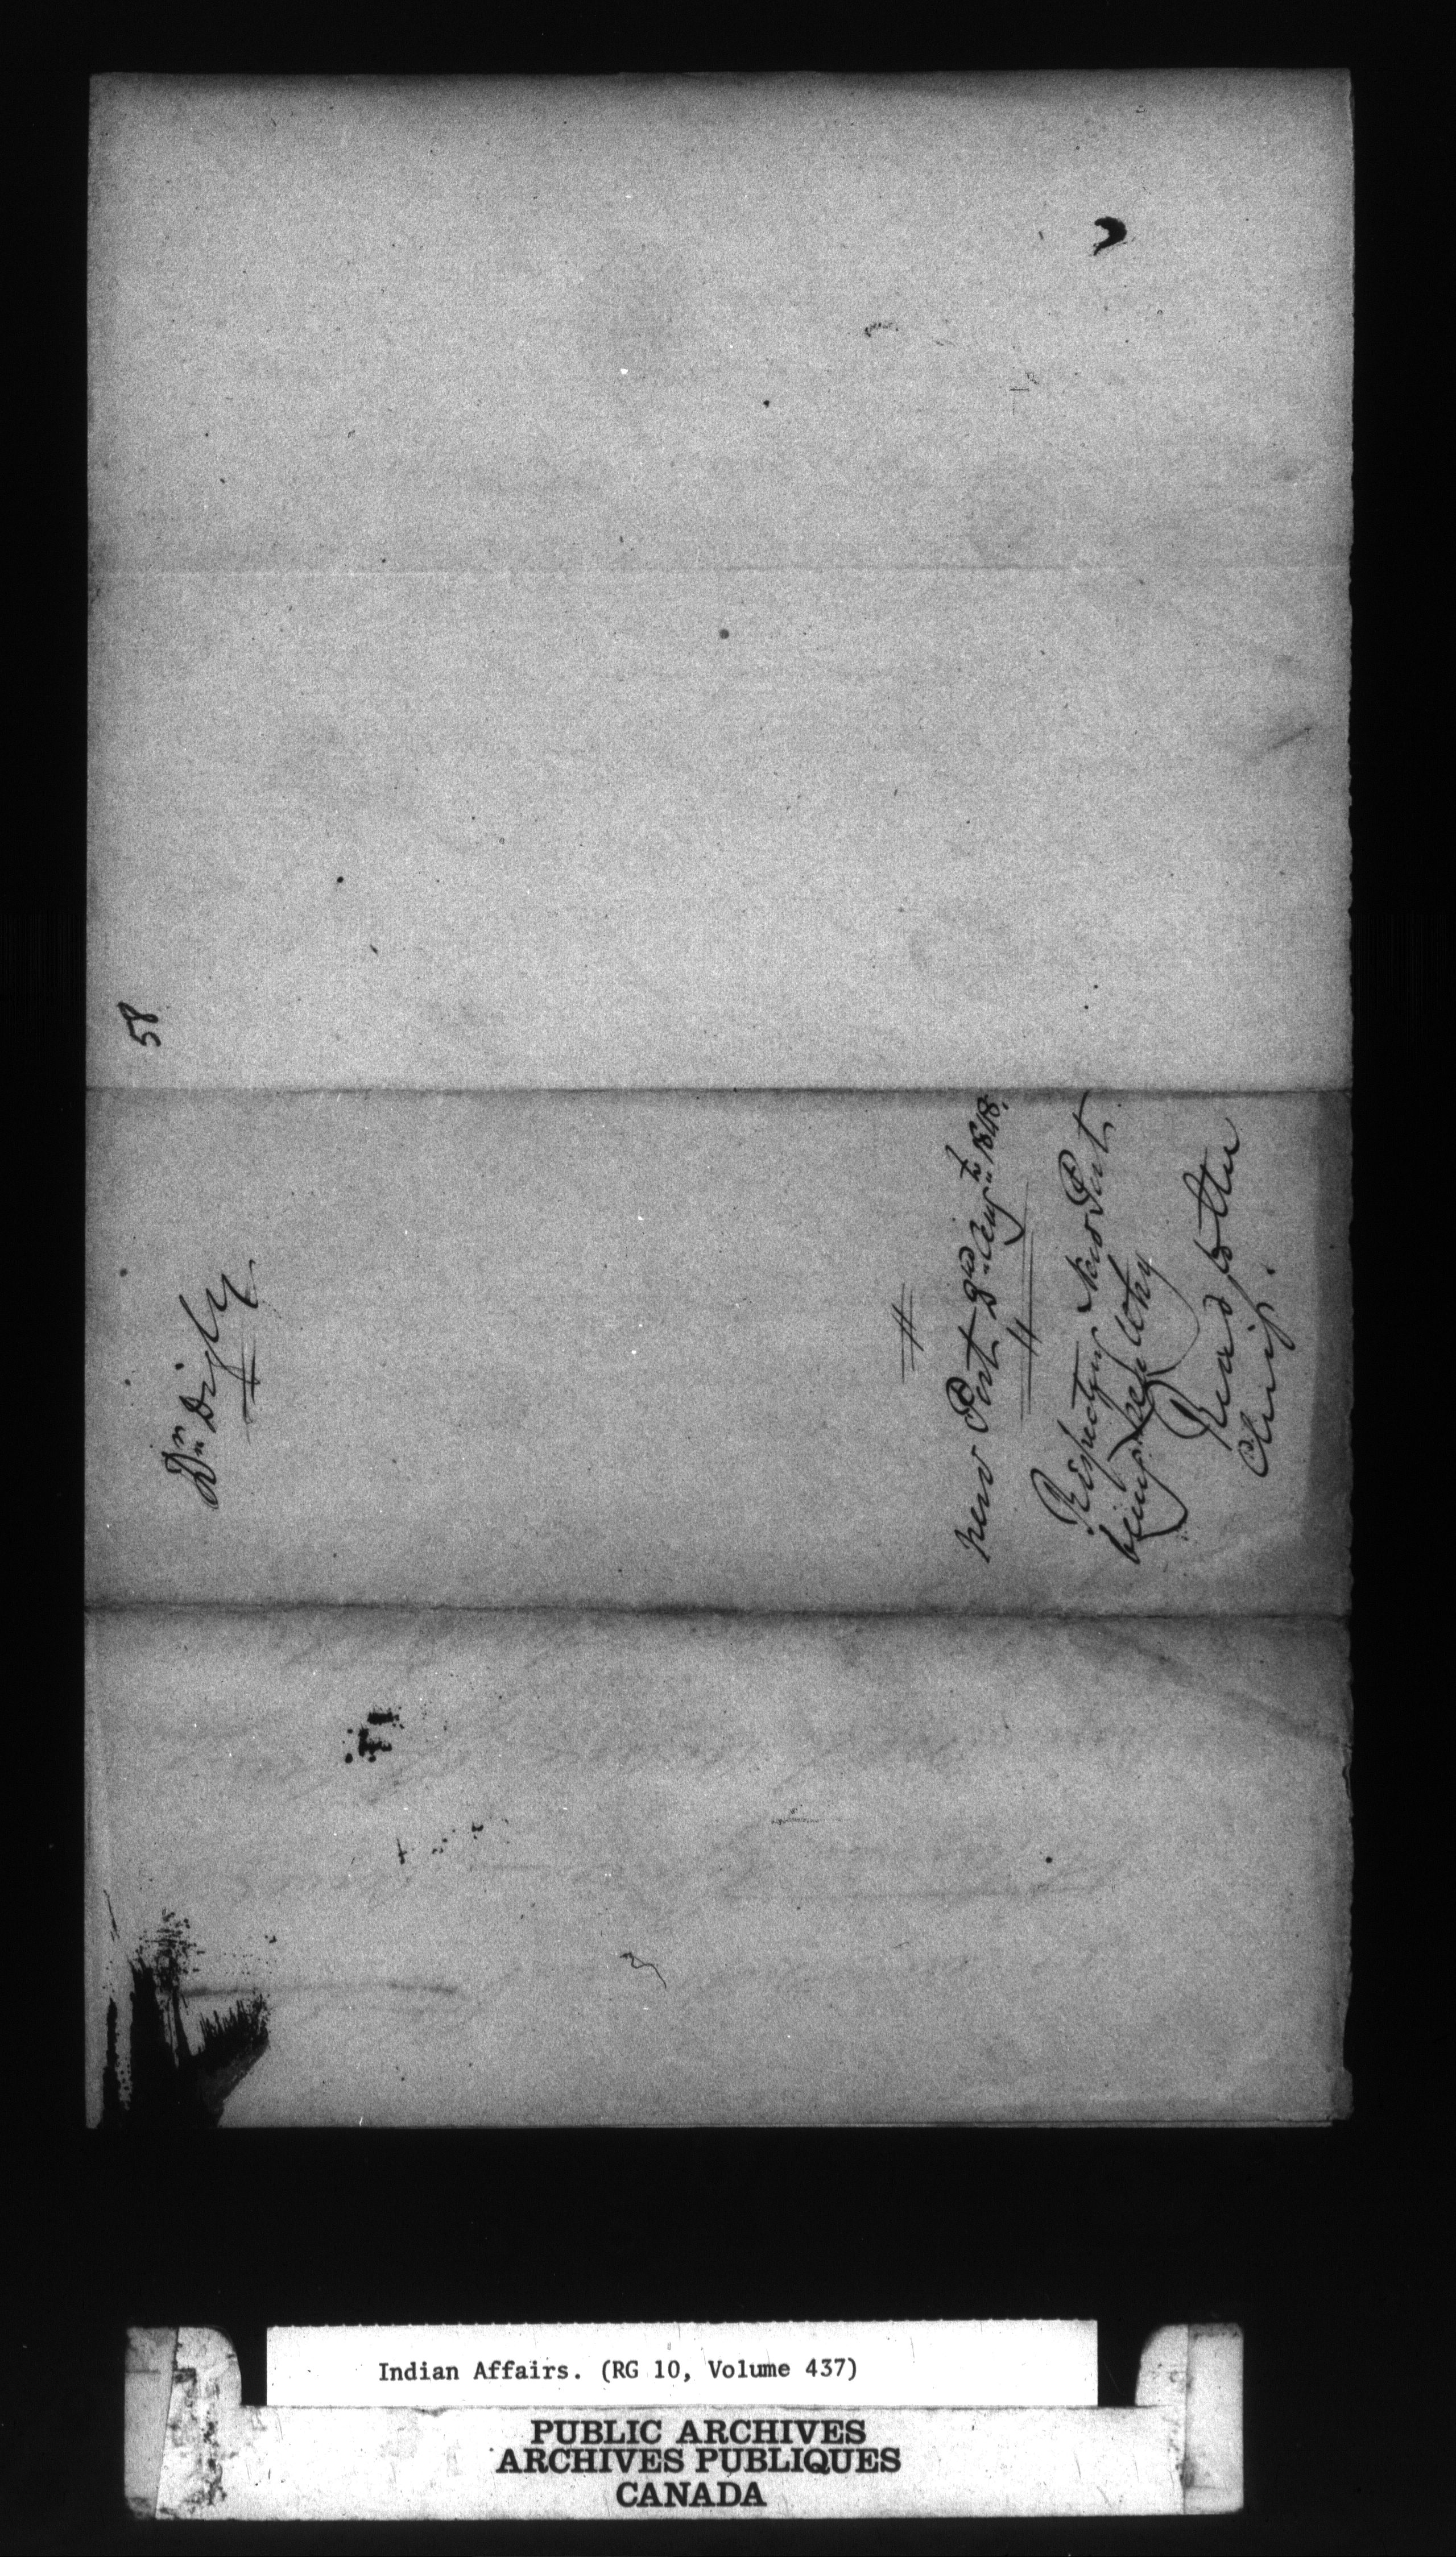 58
Dr. Digby
New Port 2nd Augt 1848.
Respecting New Port
being
Read to the
Chiefs.
Indian Affairs. (RG 10, Volume 437)
PUBLIC ARCHIVES
ARCHIVES PUBLIQUES
CANADA